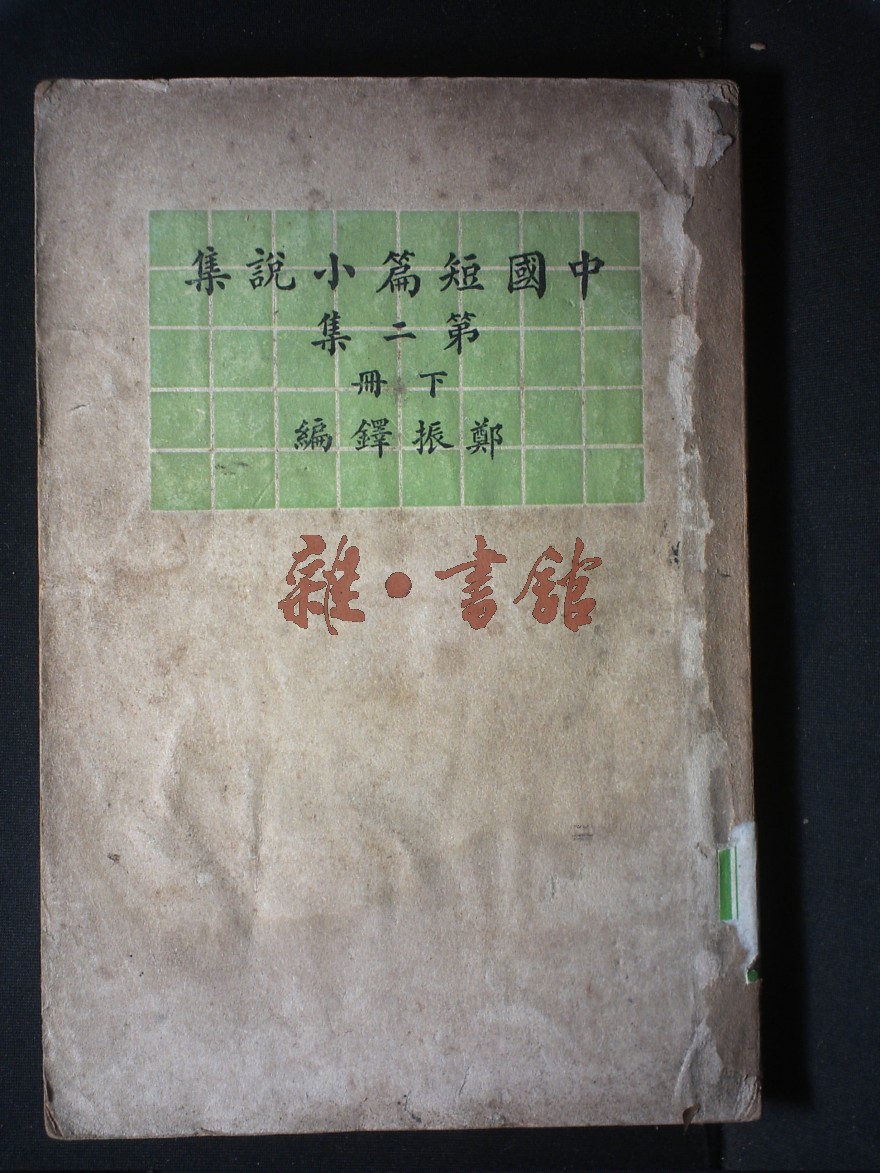 中國短篇小說集
第二集
下冊
鄭振鐸編
雜·書館